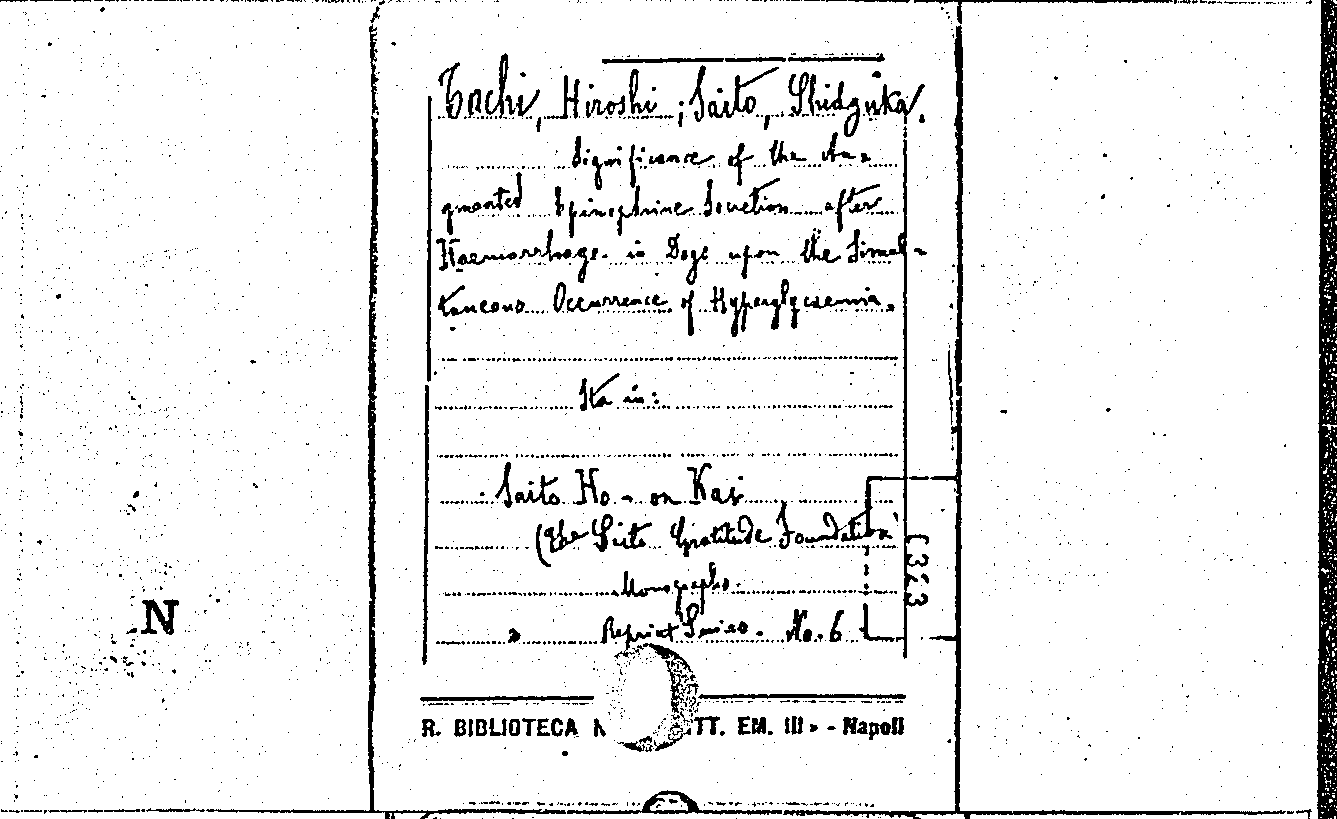 Tachi, Hiroshi; Saito, Shidzuka.
Significance of the Au=
gmented Epinephrine Secretion after
Haemorrhage in Dogs upon the Simul-
taneous Occurrence of Hyperglycaemia.
Sta in:
Saito Ho-on Kai
(The Saito Gratitude Foundation
Monographs.
Reprint Series. No. 6
[323
N
R. BIBLIOTECA N TT. EM. III» - Napoli